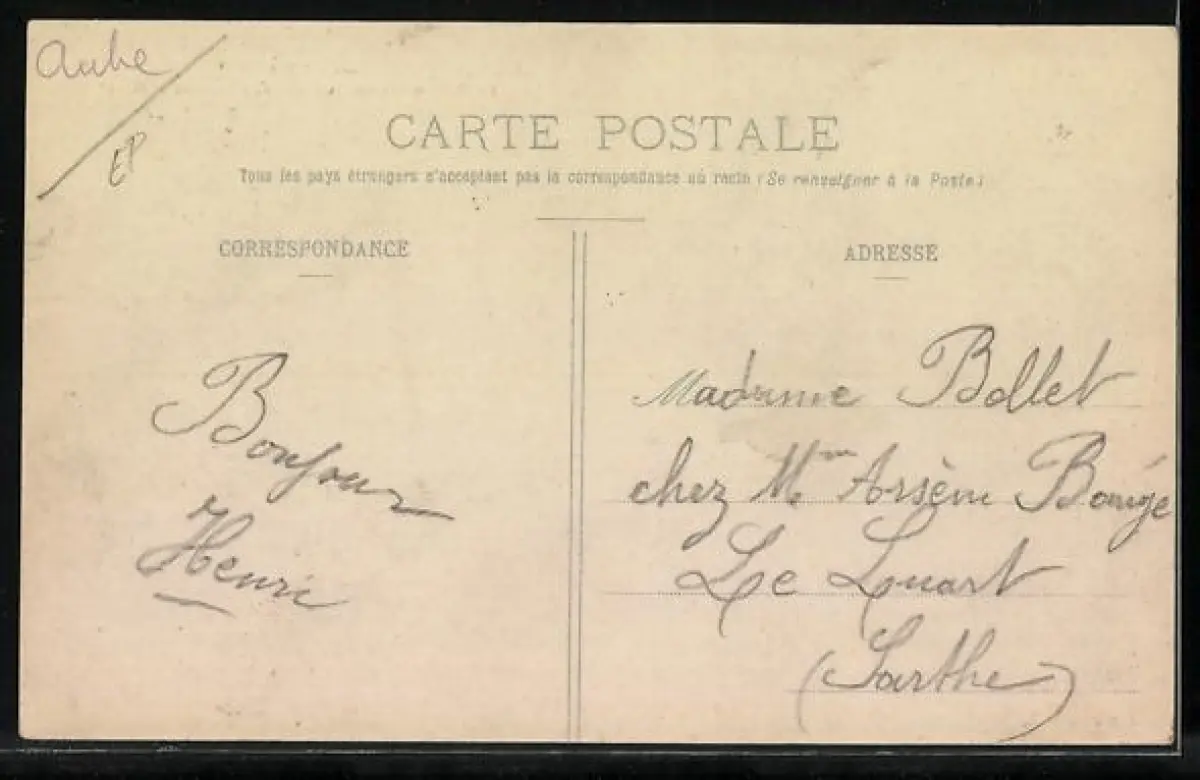 Aube
EP
CARTE POSTALE
Tous les pays étrangers n'acceptent pas la correspondance au recto (Se renseigner à la Poste)
CORRESPONDANCE
ADRESSE
Bonjour
Henri
Madame Bollet
chez Mme Arsène
Le Luart
(Sarthe)